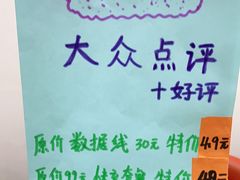 大众点评
+好评
原价数据线30元 特价49元
原价99元 特价48元